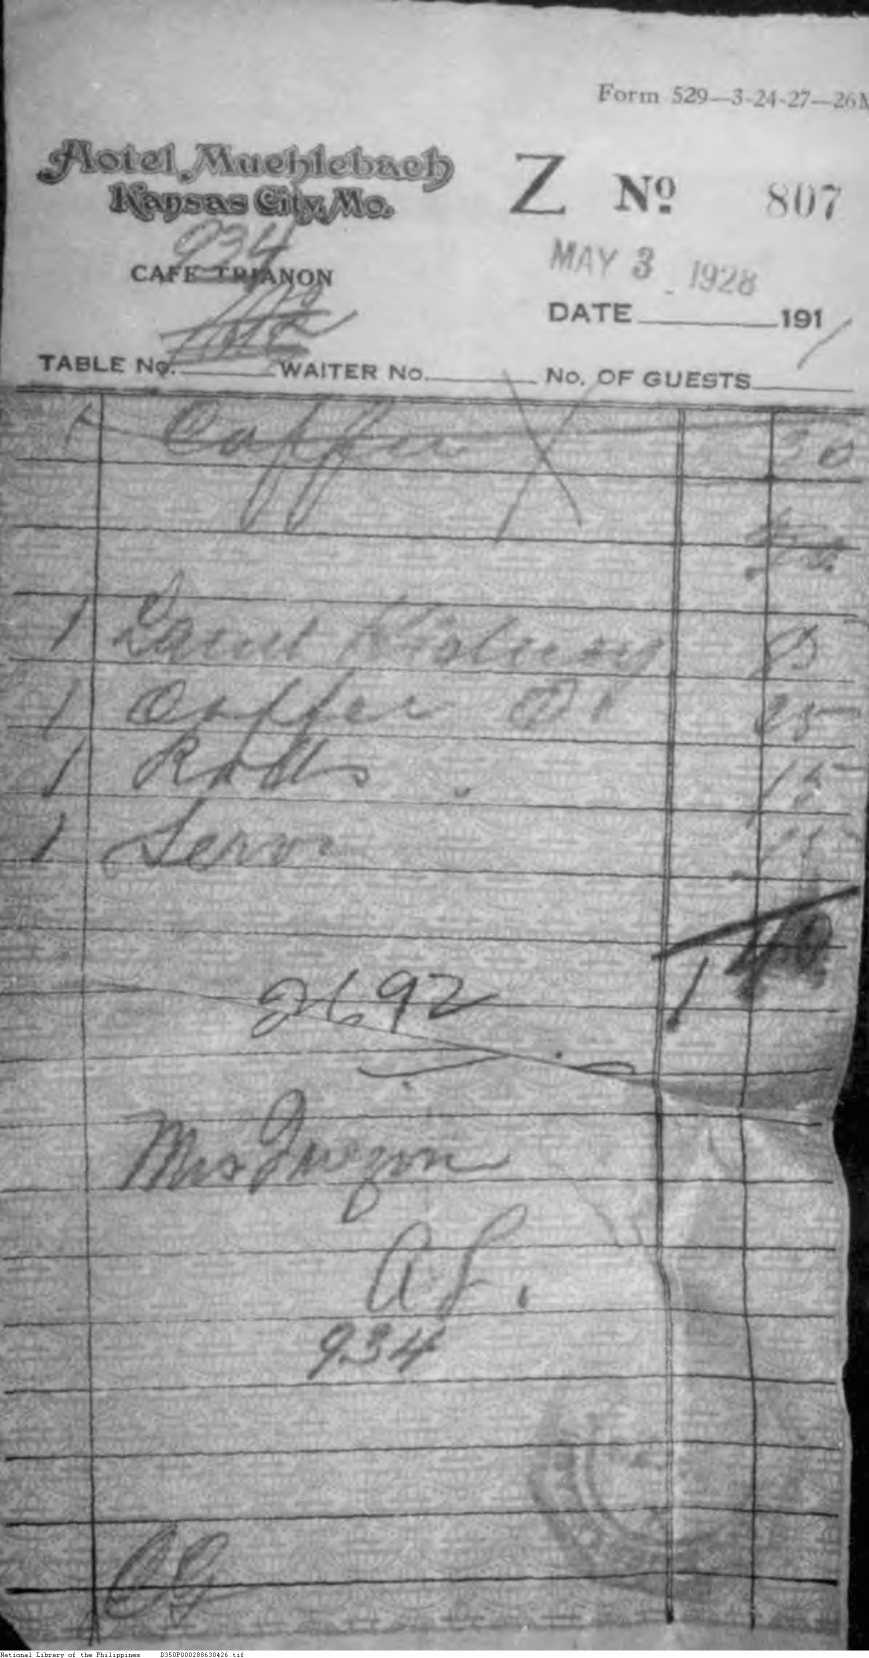 Form 529—3-24-27—26M
Hotel Muehlebach
Kansas City, Mo.
Z No 807
934
CAFE TRIANON
MAY 3 1928
DATE 191
TABLE No. WAITER No. No. OF GUESTS
1 Coffee 30
1 Kidney 85
1 Coffee 25
1 Rolls 15
1 Serv 15
1 40
2692
Mrs Quezon
934
National Library of the Philippines D350P000288630426.tif